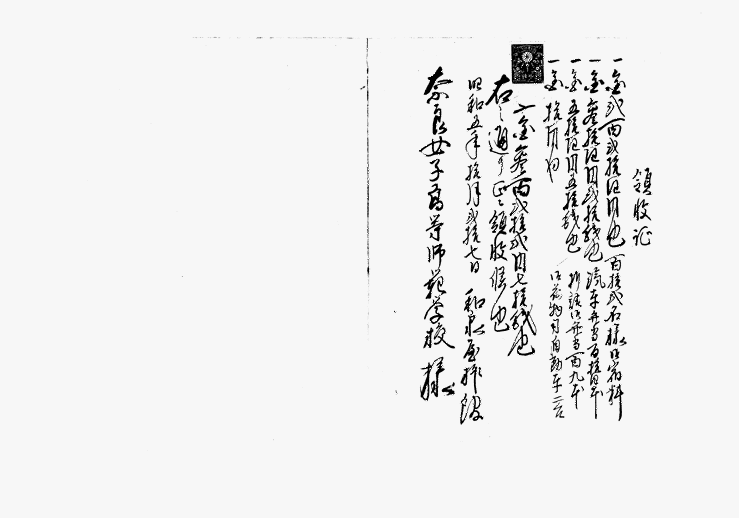 領收証
一金弐百弐拾四円也 百拾弐名様御宿料
一金参拾四円弐拾銭也 汽車弁当百拾四本
一金五拾四円五拾銭也 折詰御弁当百九本
一金拾円也 御荷物用自動車二台
〆金参百弐拾弐円七拾銭也
右之通り正ニ領收候也
昭和五年拾月弐拾七日 和泉屋旅館
奈良女子高等師範学校 様